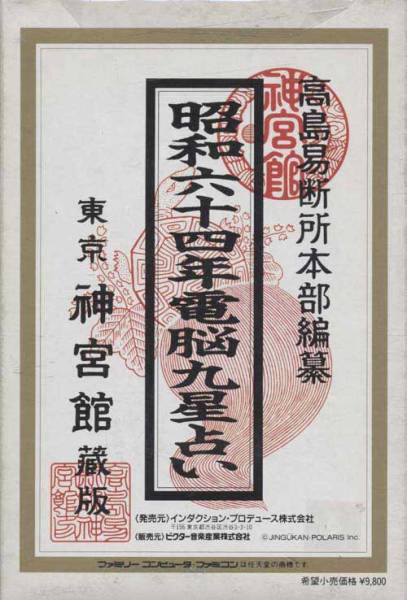 高島易断所本部編纂
神宮館
昭和六十四年電脳九星占い
東京 神宮館 藏版
〈発売元〉インダクション・プロデュース株式会社
〒150 東京都渋谷区渋谷3-3-10
〈販売元〉ビクター音楽産業株式会社
©JINGŪKAN・POLARIS Inc.
ファミリーコンピュータ・ファミコンは任天堂の商標です
希望小売価格 ¥9,800